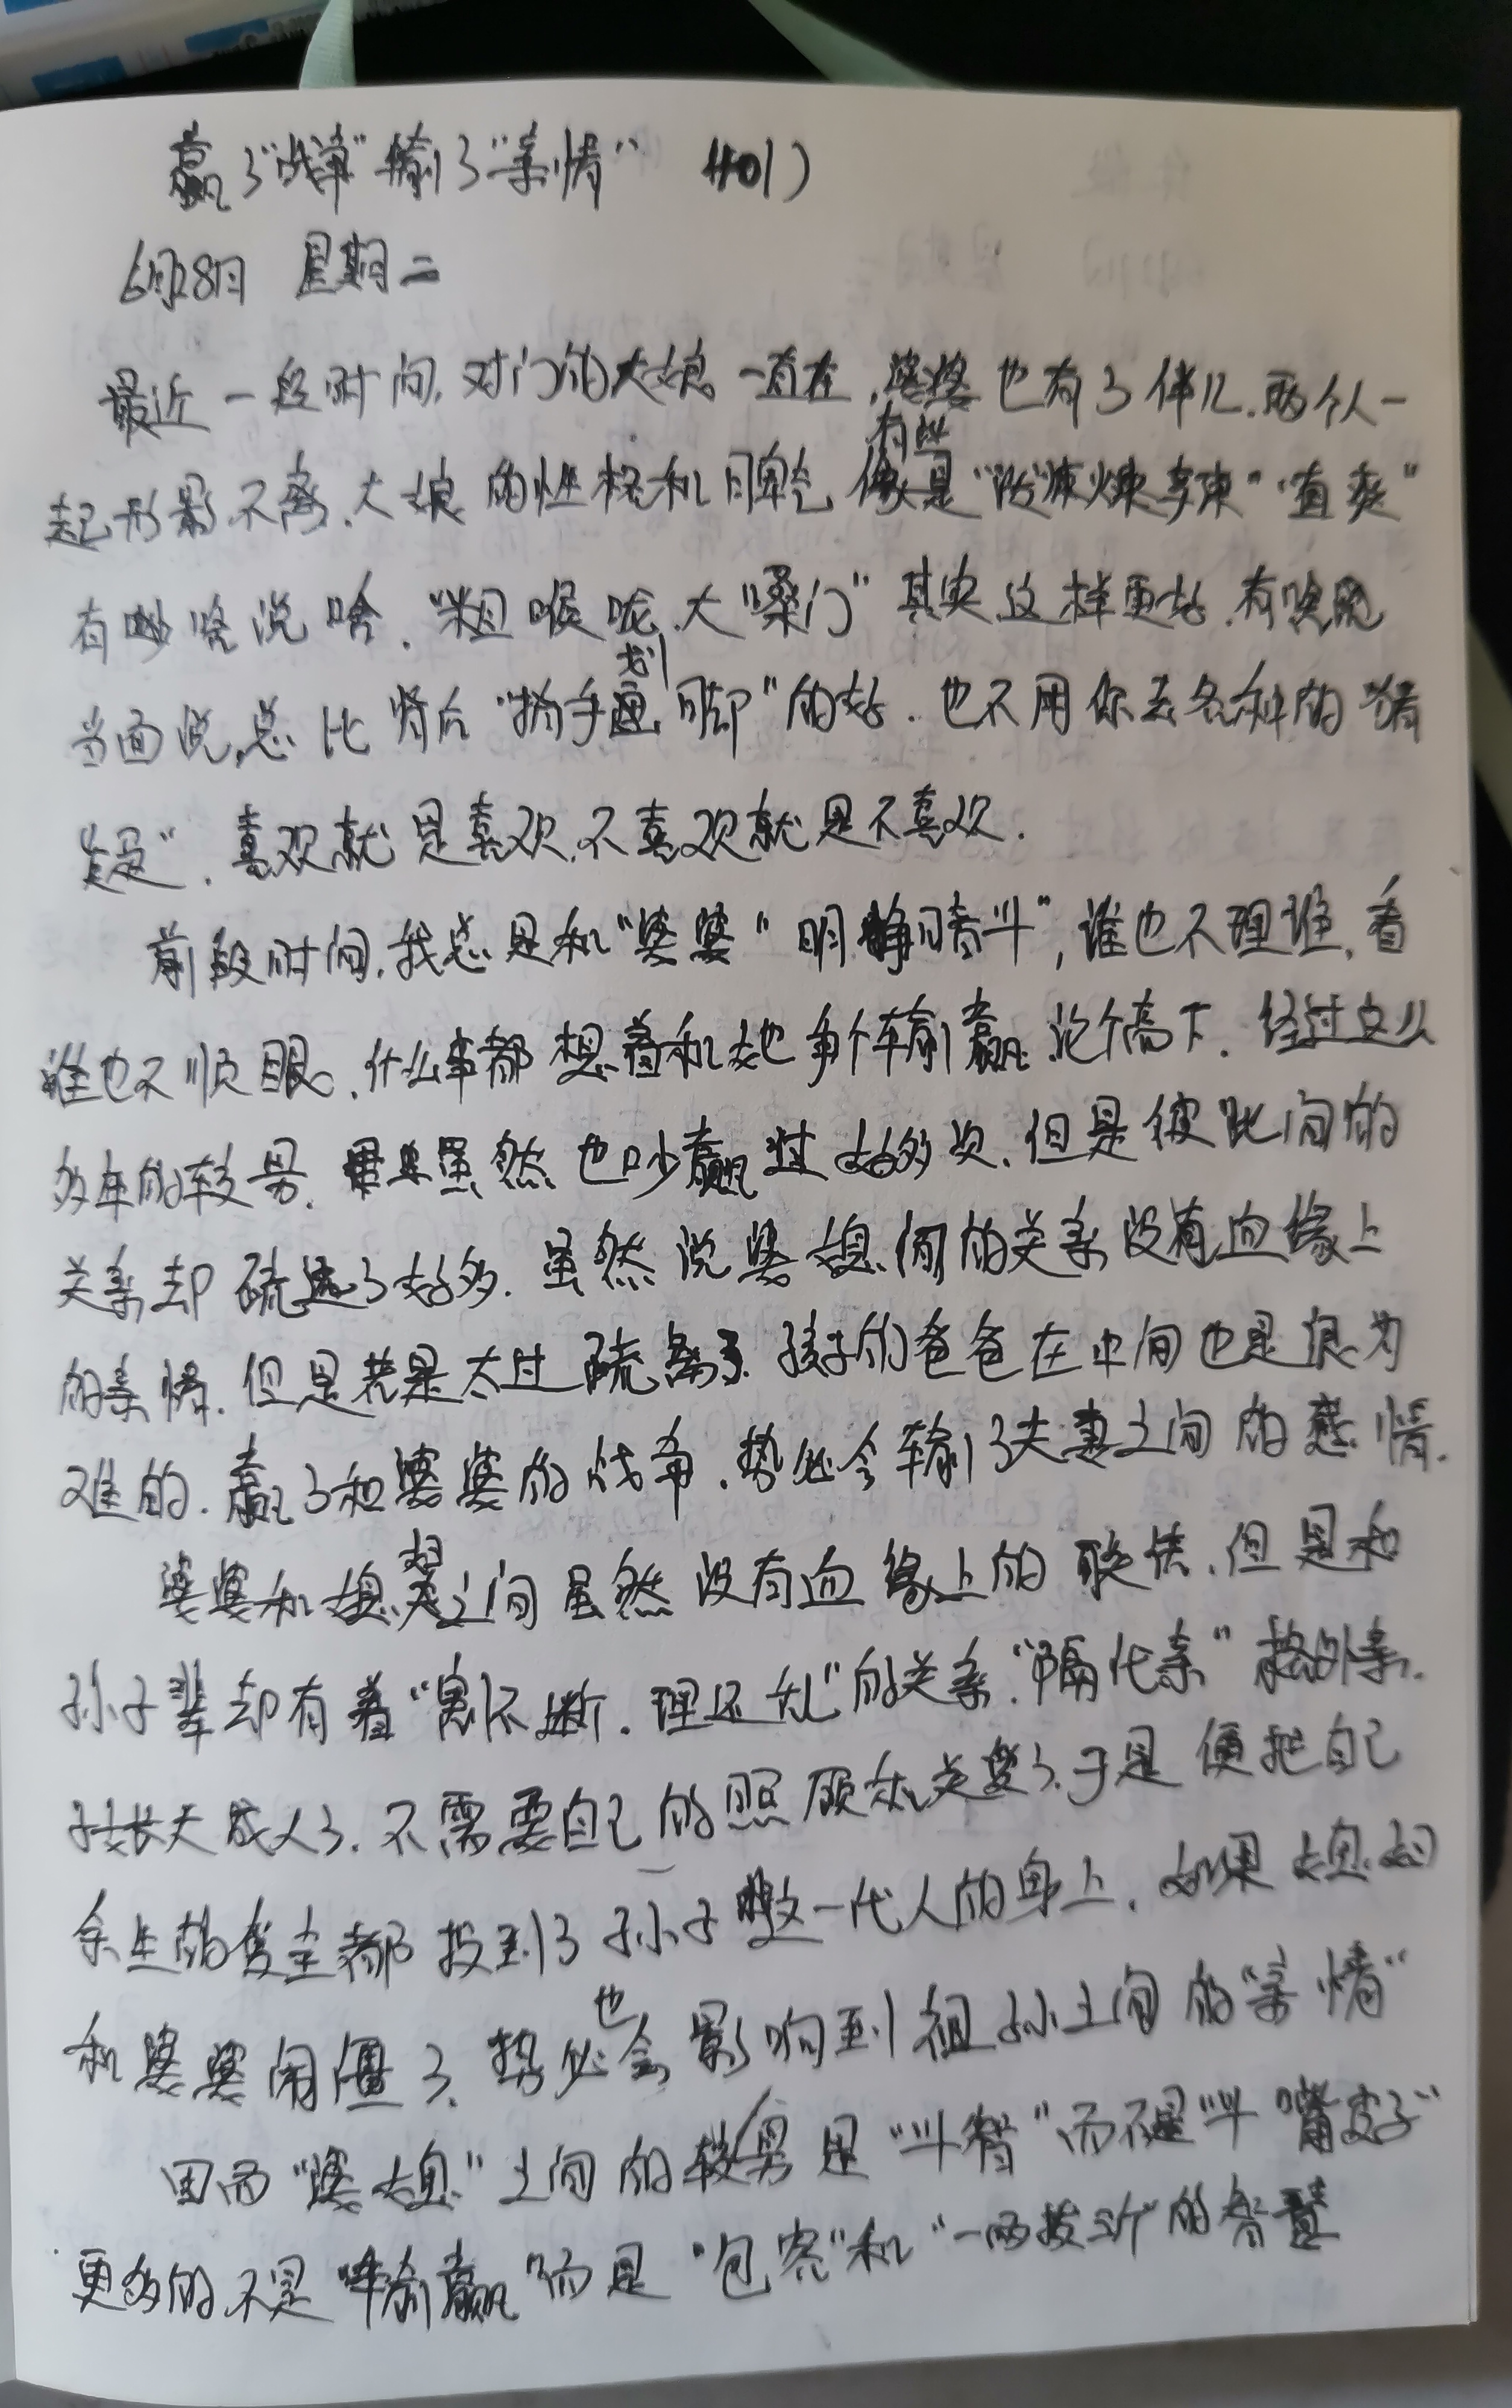 赢了"战争"输了"亲情"
6月28日 星期二
最近一段时间,对门的大娘一直在,婆婆也有了伴儿.两个人一
起形影不离.大娘的性格和脾气有些像是"直爽"
有啥说啥."粗喉咙、大"嗓门"其实这样更好.有啥说
当面说,总比背后"指手画划脚"的好.也不用你去各种的"猜
疑".喜欢就是喜欢,不喜欢就是不喜欢.
前段时间,我总是和"婆婆"明争暗斗",谁也不理谁,看
谁也不顺眼.什么事都想着和她争个输赢论个高下.经过这么
多年的较劲.虽然也吵赢过好多次.但是彼此间的
关系却疏远了好多.虽然说婆媳间的关系没有血缘上
的亲情.但是若是太过疏离了.孩子的爸爸在中间也是很为
难的.赢了和婆婆的战争.势必会输了夫妻之间的感情.
婆婆和媳妇之间虽然没有血缘上的联系.但是和
孙子辈却有着"割不断.理还乱"的关系."隔代亲"格外亲.
子女长大成人了.不需要自己的照顾和关爱了.于是便把自己
余生的重全都投到了孙子这一代人的身上.如果媳妇
和婆婆闹僵了.势必也会影响到祖孙之间的"亲情"
因而"婆媳"之间的较劲是"斗智"而不是"斗嘴皮子"
更多的不是"争输赢"而是"包容"和"一两拨千斤"的智慧